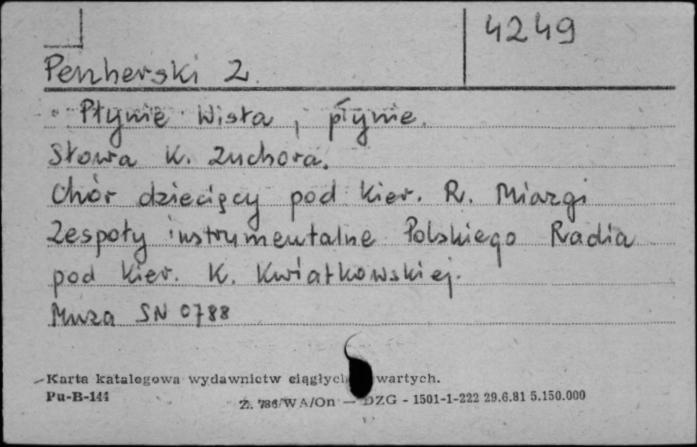 4249
Penherski Z.
Płynie Wisła, płynie.
Słowa K. Zuchora.
Chór dziecięcy pod kier. R. Miazgi
Zespoły instrumentalne Polskiego Radia
pod kier. K. Kwiatkowskiej.
Muza SN 0788
Karta katalogowa wydawnictw ciągłych wartych.
Pu-B-144
Z. 786/WA/On — DZG - 1501-1-222 29.6.81 5.150.000